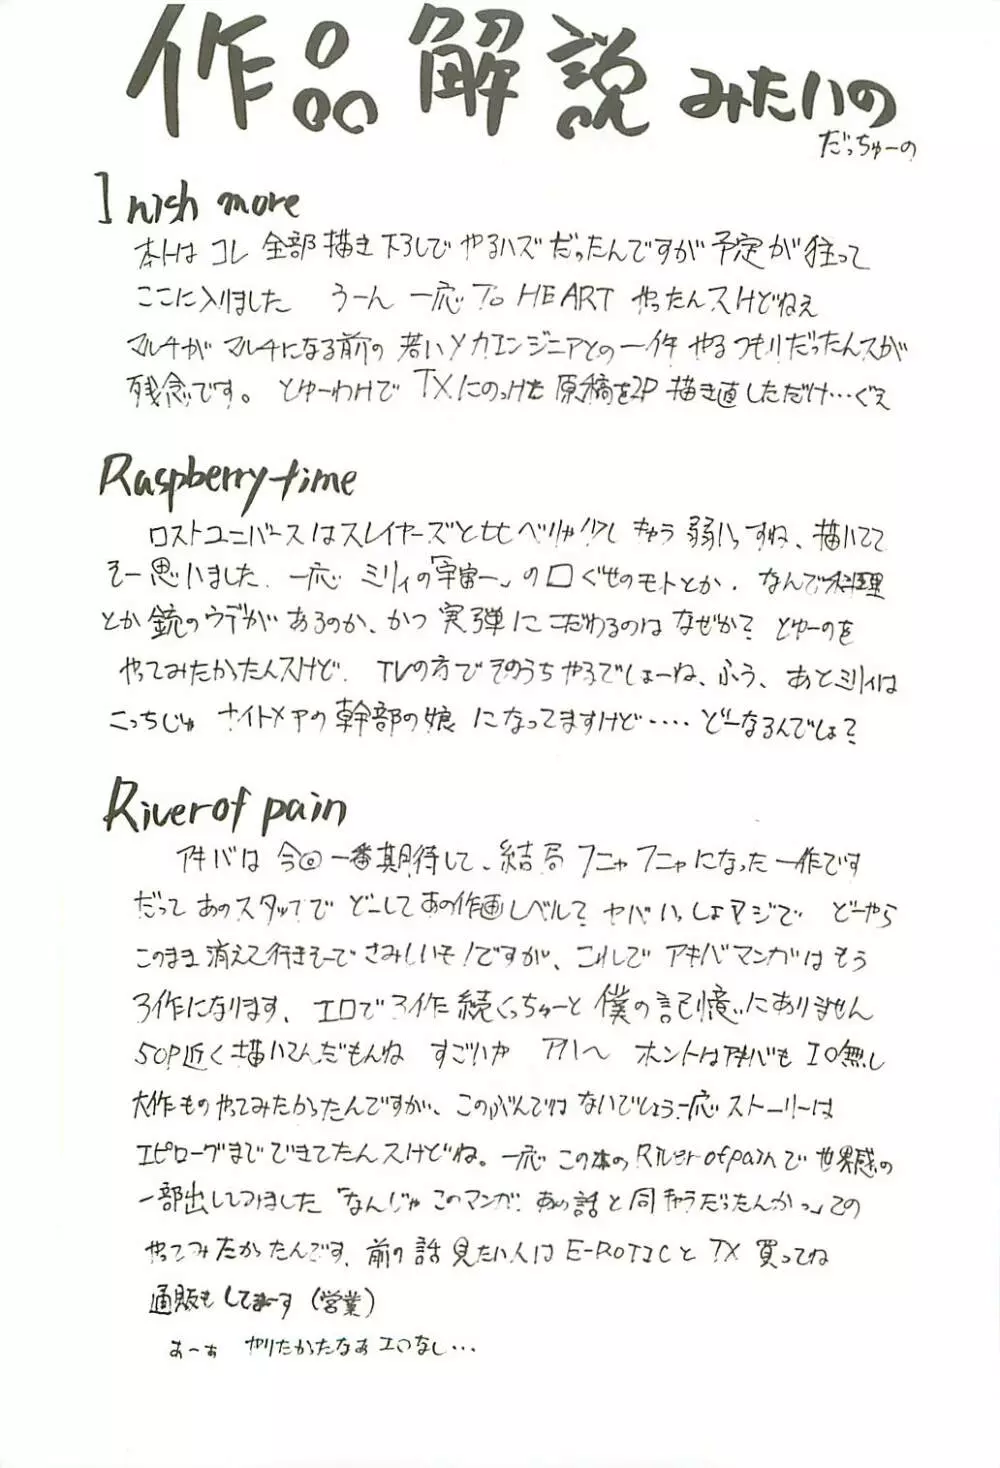 作品解説みたいの
だっちゅーの
I wish more
本トは コレ 全部描き下ろしで やるハズだったんですが 予定が狂って
ここに入りました うーん 一応 To HEART やったんスけどねえ
マルチが マルチになる前の 若いメカエンジニアとの一件 やるつもりだったんスが
残念です。 とゆーわけで TXにのっけた 原稿を2P 描き直しただけ…ぐえ
Raspberry time
ロストユニバースはスレイヤーズと比べりゃ 少し キャラ 弱いっすね、描いてて
そー思いました. 一応 ミリィの「宇宙一」の口ぐせのモトとか. なんで料理
とか銃のウデが あるのか、かつ 実弾に こだわるのは なぜか? とゆーのを
やってみたかったんスけど. TVの方で そのうち やるでしょーね、ふう、あとミリィは
こっちじゃ ナイトメアの幹部の娘 になってますけど‥‥ どーなるんでしょ?
River of pain
アキバは 今回 一番期待して、結局 フニャフニャになった 一作です
だって あのスタッフで どーして あの作画レベル? ヤバいっしょマジで どーやら
このまま 消えて行きそーで さみしいそ!ですが、これで アキバマンガは もう
3作になります、 エロで3作 続くっちゅーと 僕の記憶にありません
50P近く 描いてんだもんね すごいか アハヘ ホントはアキバも エロ無し
大作もの やってみたかったんですが、このぶんでは ないでしょう 一応 ストーリーは
エピローグまで できてたんスけどね。 一応 この本の River of painで 世界感の
一部出しつつ しました 「なんじゃ このマンガ. あの話と 同キャラだったんかっ」ての
やってみたかったんです. 前の話 見たい人は E-ROTIC と TX 買ってね
通販も してまーす (営業)
あーぁ やりたかったなぁ エロなし…